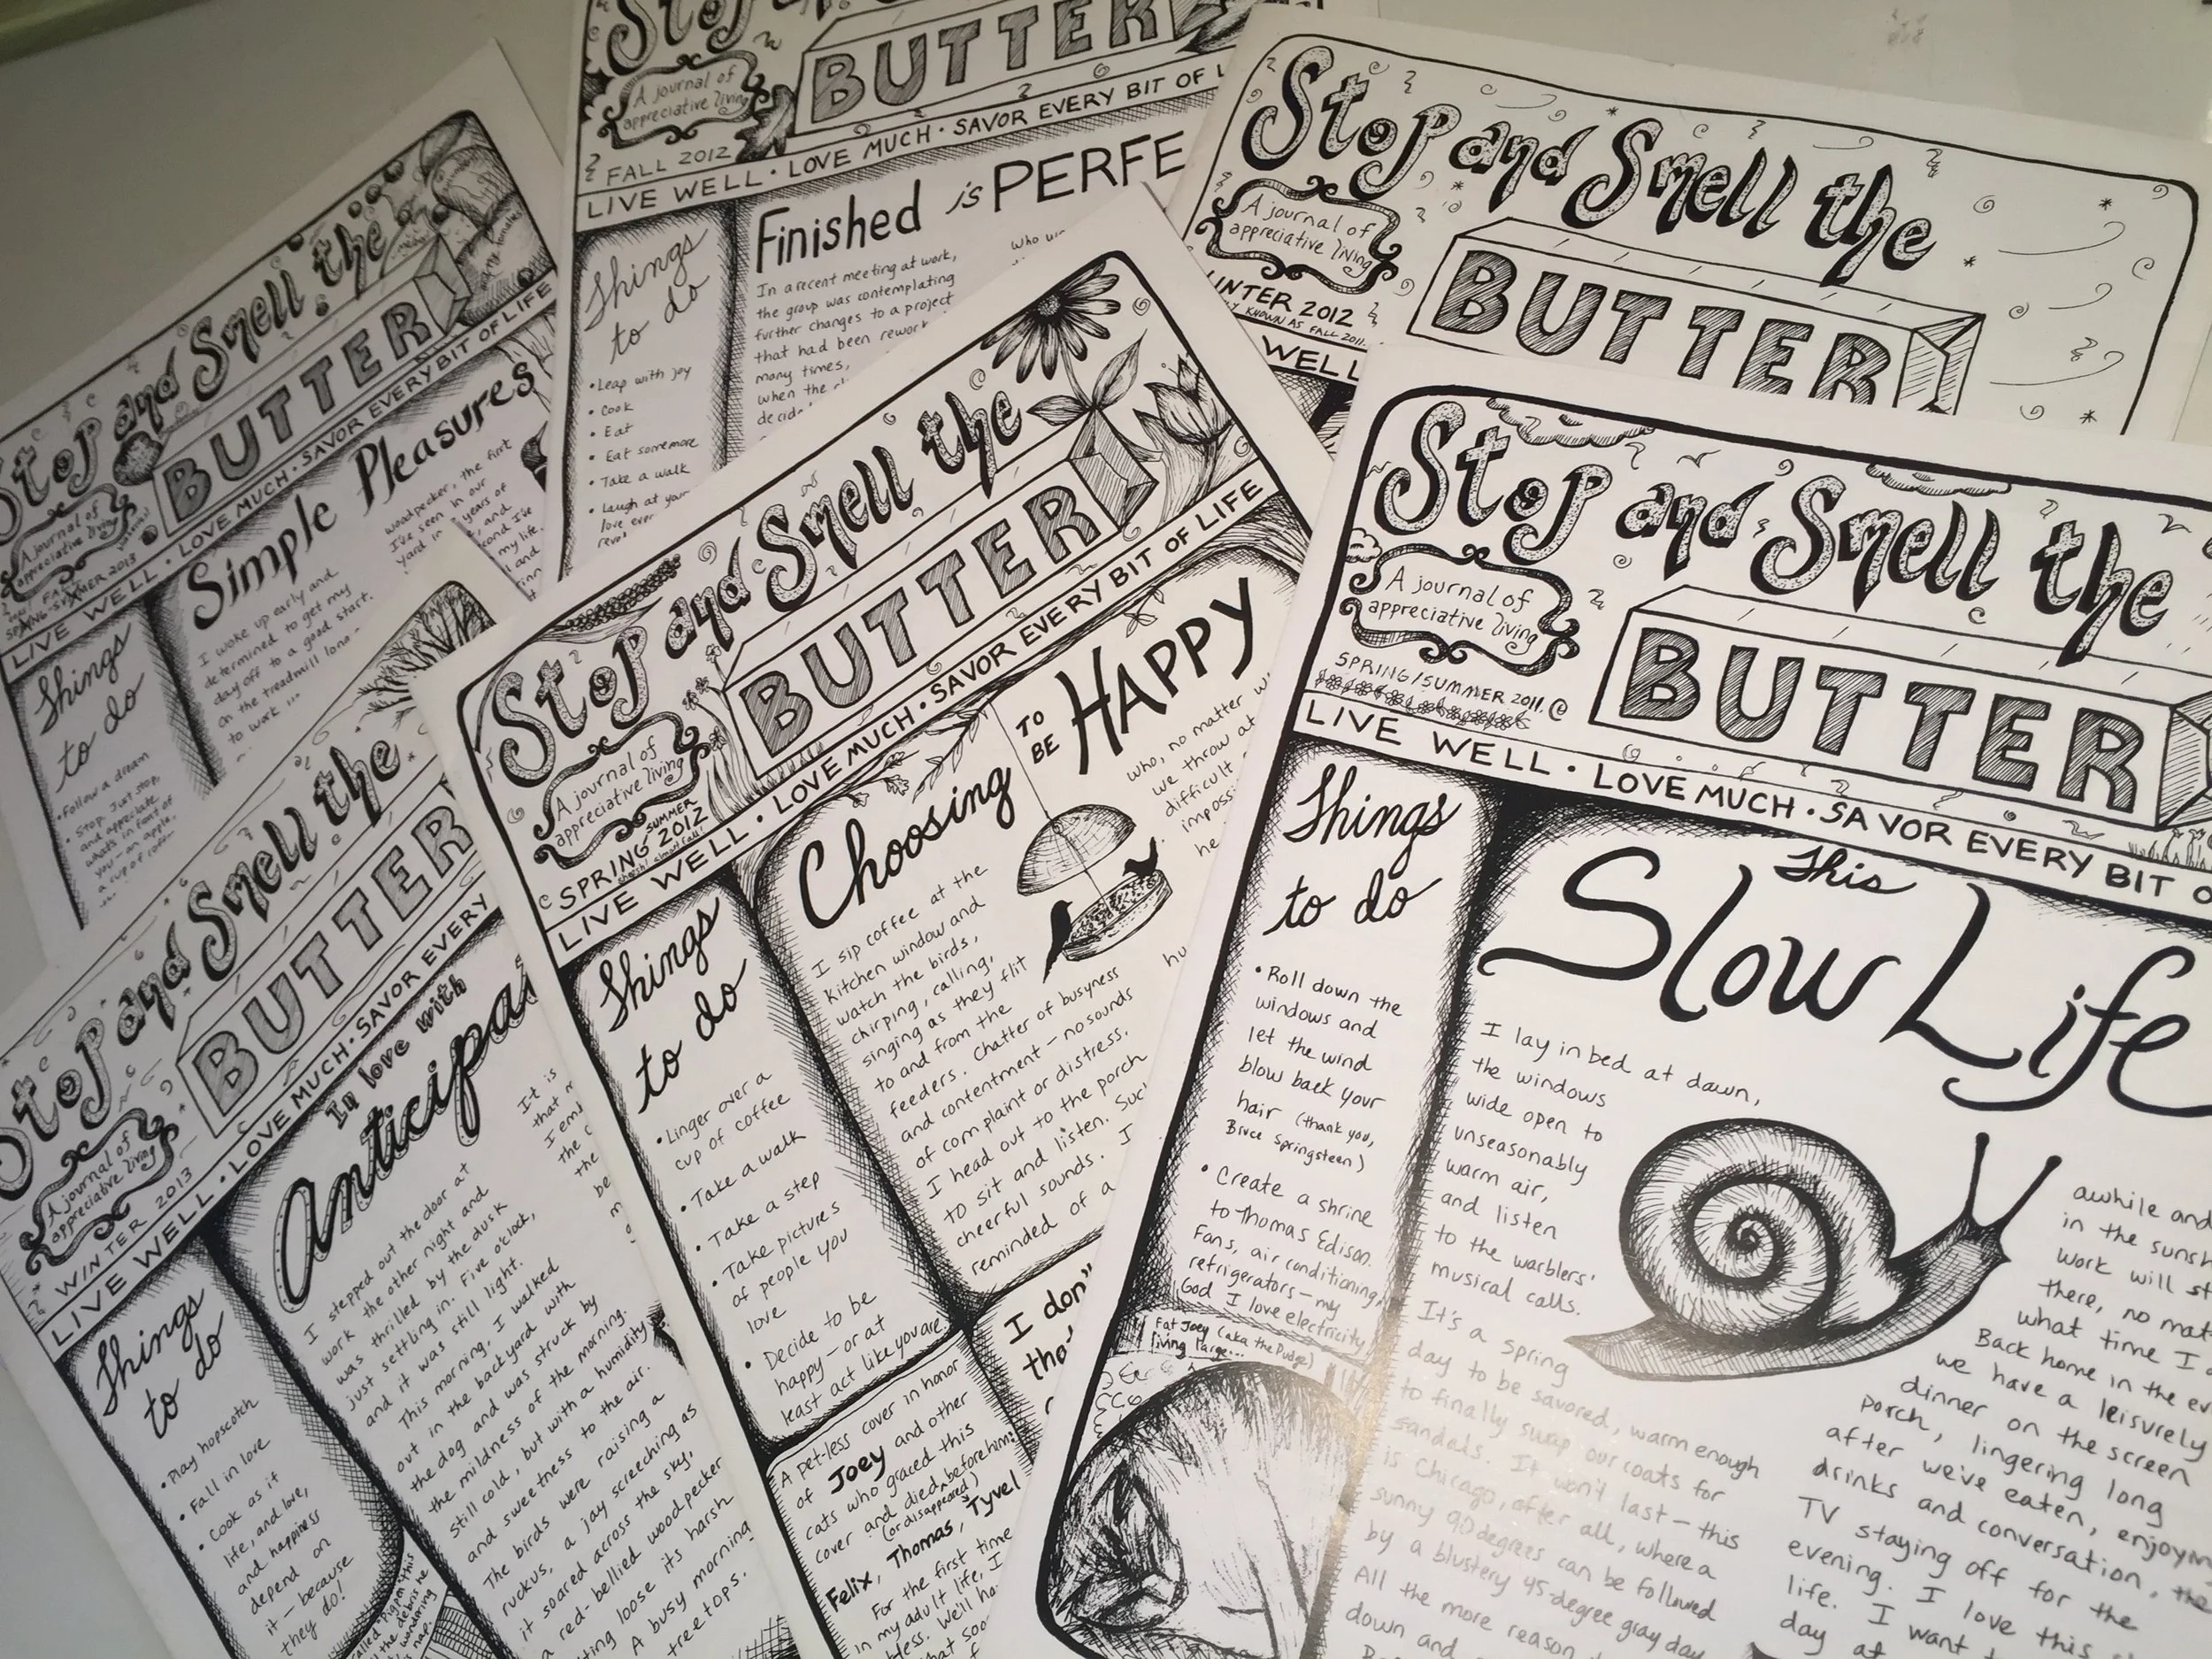 Stop and Smell the
BUTTER
A journal of
appreciative living
SPRING-SUMMER 2013
LIVE WELL · LOVE MUCH · SAVOR EVERY BIT OF LIFE
Simple Pleasures
Things
to do
• Follow a dream
• Stop. Just stop.
and appreciate
what's in front of
you - an apple,
a cup of coffee
I woke up early and
determined to get my
day off to a good start.
on the treadmill long
to work ...
woodpecker, the first
I've seen in our
yard in
years of
and
my life.
BUTTER
A journal of
appreciative living
FALL 2012
LIVE WELL · LOVE MUCH · SAVOR EVERY BIT OF L
Finished is PERFE
Things
to do
• Leap with joy
• Cook
• Eat
• Eat some more
• Take a walk
• Laugh at your
love ever
In a recent meeting at work,
the group was contemplating
further changes to a project
that had been rework
many times,
when the
Stop and Smell the
BUTTER
A journal of
appreciative living
WINTER 2012
KNOWN AS FALL 2011.
WELL
Stop and Smell the
BUTTER
A journal of
appreciative living
WINTER 2013
LIVE WELL · LOVE MUCH · SAVOR EVERY
In love with
Anticipa
Things
to do
• Play hopscotch
• Fall in love
• Cook as if
life, and love,
and happiness
depend on
it - because
they do!
I stepped out the door at
work the other night and
was thrilled by the dusk
just settling in. Five o'clock,
and it was still light.
This morning, I walked
out in the backyard with
the dog and was struck by
the mildness of the morning.
Still cold, but with a humidity
and sweetness to the air.
The birds were raising a
ruckus, a jay screeching as
it soared across the sky,
a red-bellied woodpecker
letting loose its harsh
A busy morning
treetops.
It is
that
the
the
be
Stop and Smell the
BUTTER
A journal of
appreciative living
SUMMER
SPRING 2012
LIVE WELL · LOVE MUCH · SAVOR EVERY BIT OF LIFE
Choosing TO BE HAPPY
Things
to do
• Linger over a
cup of coffee
• Take a walk
• Take a step
• Take pictures
of people you
love
• Decide to be
happy - or at
least act like you are
I sip coffee at the
kitchen window and
watch the birds,
chirping, calling,
singing as they flit
to and from the
feeders. Chatter of busyness
and contentment - no sounds
of complaint or distress.
I head out to the porch
to sit and listen. Suc
cheerful sounds. I
reminded of a
who, no matter w
we throw at
difficult
imposs
he
A pet-less cover in honor
of Joey and other
cats who graced this
cover and died before him:
(or disappeared)
Felix, Thomas, Tyvel
For the first time
in my adult life, I
I don't
tho
Stop and Smell the
BUTTER
A journal of
appreciative living
SPRING/SUMMER 2011.
LIVE WELL · LOVE MUCH · SAVOR EVERY BIT O
This
Slow Life
Things
to do
• Roll down the
windows and
let the wind
blow back your
hair (thank you,
Bruce Springsteen)
• Create a shrine
to Thomas Edison.
Fans, air conditioning,
refrigerators - my
God I love electricity
Fat Joey (aka the Pudge)
living large...
I lay in bed at dawn,
the windows
wide open to
unseasonably
warm air,
and listen
to the warblers'
musical calls.
It's a spring
day to be savored, warm enough
to finally swap our coats for
sandals. It won't last - this
is Chicago, after all, where a
sunny 90 degrees can be followed
by a blustery 45-degree gray day
All the more reason
down and
awhile and
in the sunsh
work will st
there, no mat
what time I
Back home in the ev
we have a leisurely
dinner on the screen
porch, lingering long
after we've eaten, enjoyin
drinks and conversation, the
TV staying off for the
evening. I love this
life. I want
day at